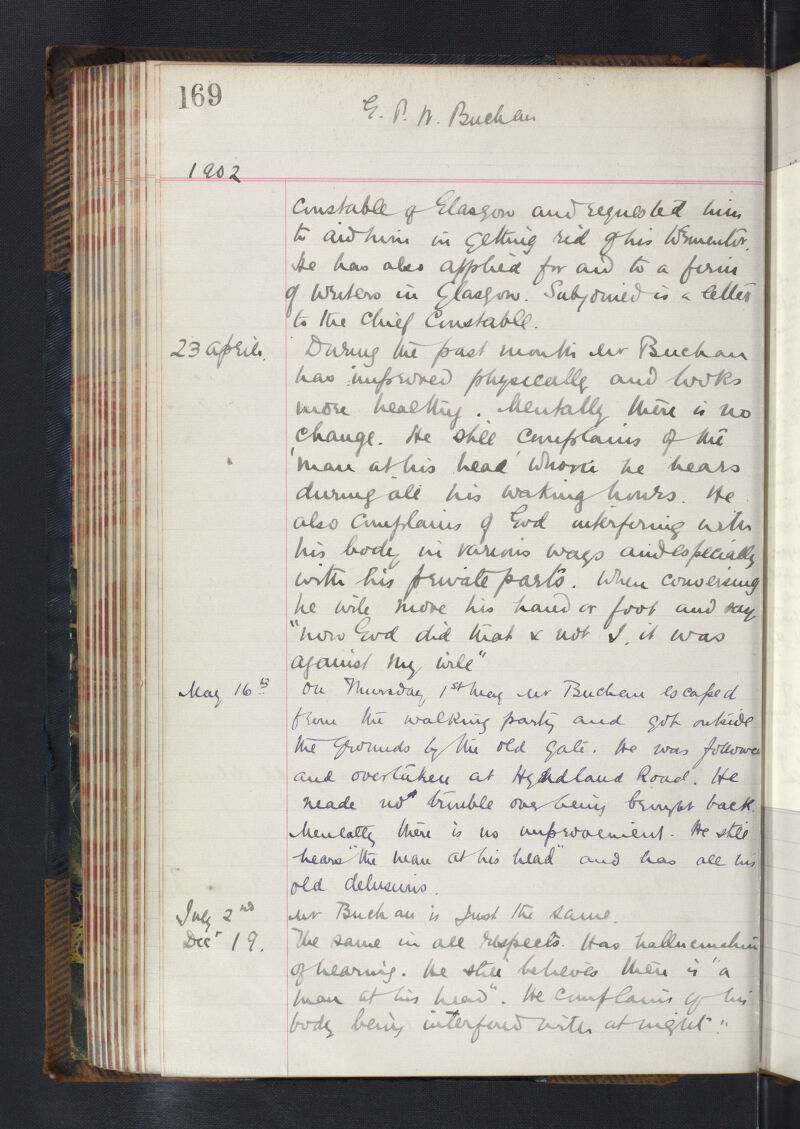 169
G. P. W. Buchan
1902
Constable of Glasgow and requested him
to aid him in getting rid of his tormentor.
He has also applied for aid to a firm
of writers in Glasgow. Subjoined is a letter
to the Chief Constable.
23 April. During the past month Mr Buchan
has improved physically and looks
more healthy. Mentally there is no
change. He still complains of the
'man at his head' whom he hears
during all his waking hours. He
also complains of God interfering with
his body in various ways and especially
with his private parts. When conversing
he will move his hand or foot and say
"now God did that & not I, it was
against my will"
May 16th On Thursday 1st May Mr Buchan escaped
from the walking party and got outside
the grounds by the old gate. He was followed
and overtaken at Hyndland Road. He
made no trouble over being brought back.
Mentally there is no improvement. He still
hears "the man at his head" and has all his
old delusions.
July 2nd Mr Buchan is just the same.
Decr 19. The same in all respects. Has hallucinations
of hearing. He still believes there is "a
man at his head". He complains of his
body being interfered with at night".